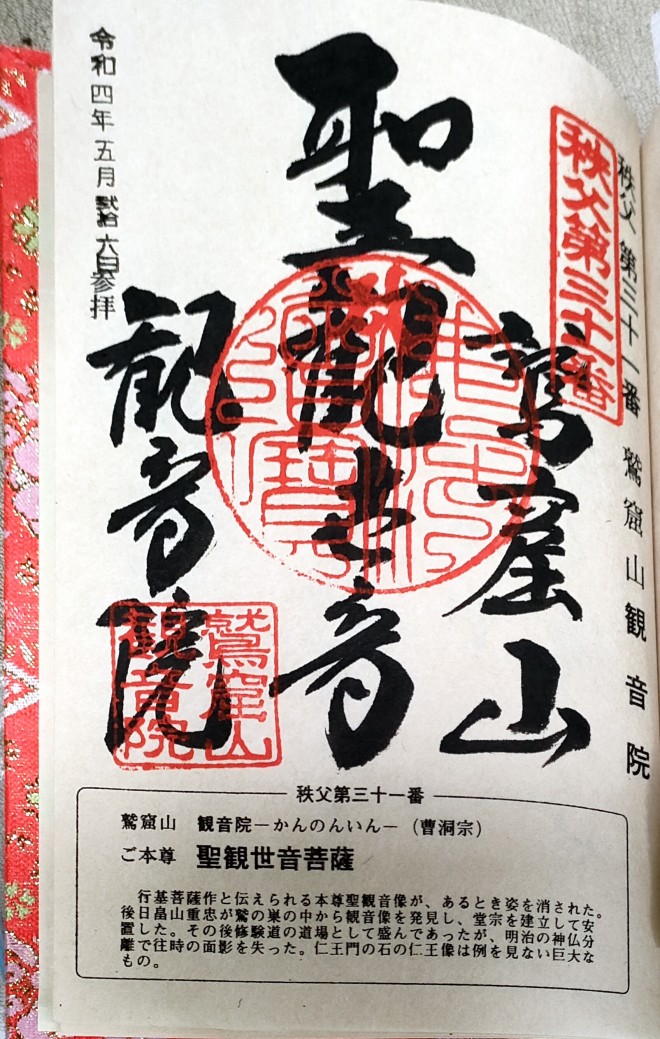 秩父第三十一番 鷲窟山観音院
秩父第三十一番
鷲窟山
聖観世音
観音院
鷲窟山
観音院
令和四年五月弐拾六日参拝
秩父第三十一番
鷲窟山 観音院―かんのんいん―(曹洞宗)
ご本尊 聖観世音菩薩
行基菩薩作と伝えられる本尊聖観音像が、あるとき姿を消された。
後日畠山重忠が鷲の巣の中から観音像を発見し、堂宗を建立して安
置した。その後修験道の道場として盛んであったが、明治の神仏分
離で往時の面影を失った。仁王門の石の仁王像は例を見ない巨大な
もの。